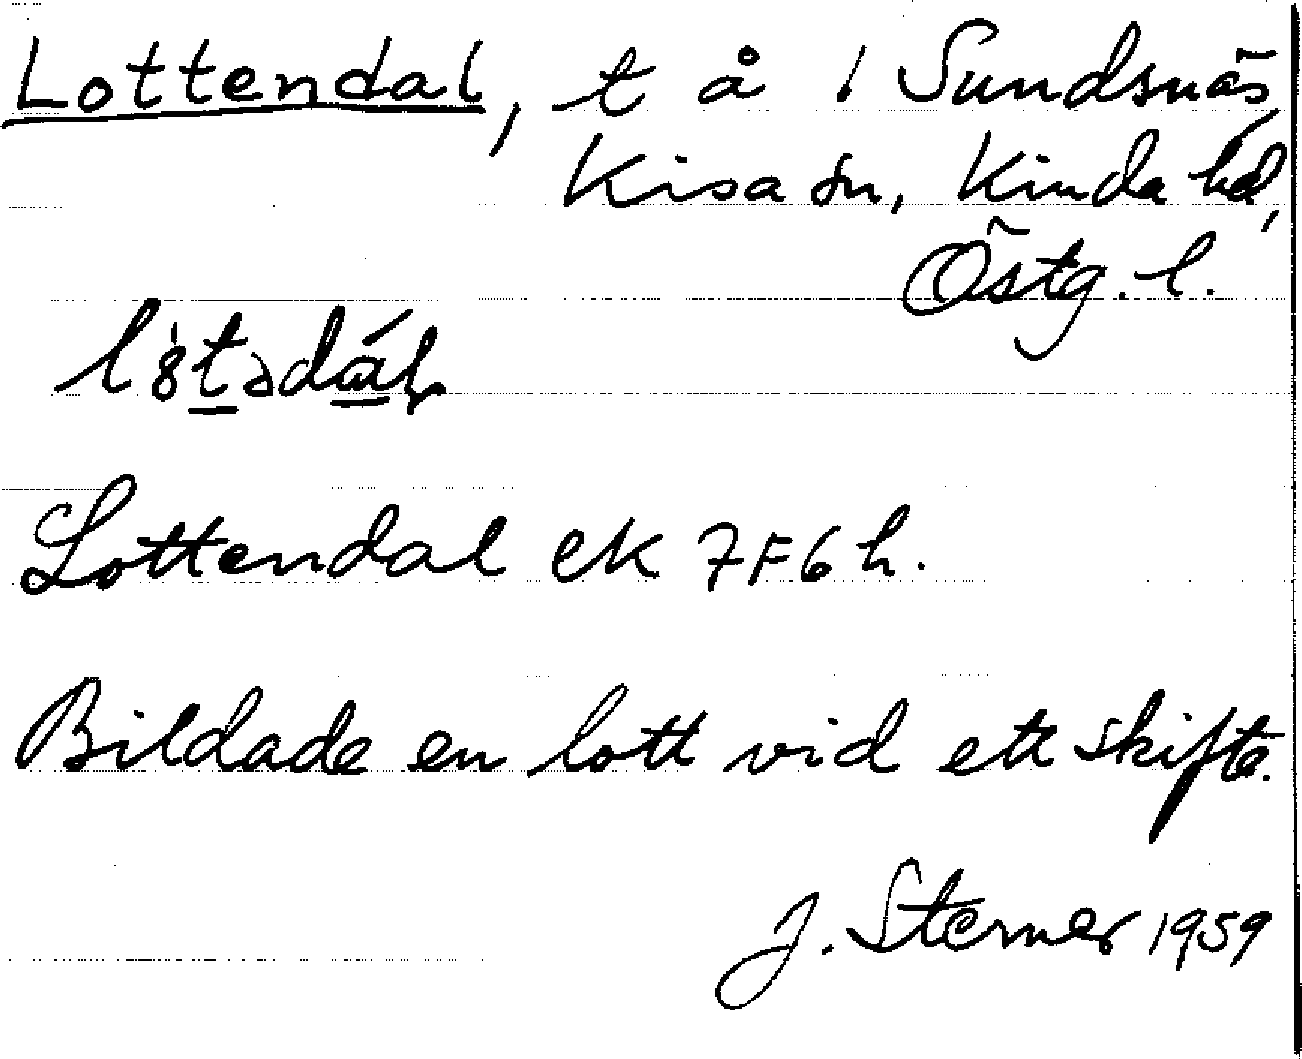 Lottendal, t å 1 Sundsnäs
Kisa sn, Kinda hd,
Östg. l.
Lottendal ek 7F6h.
Bildade en lott vid ett skifte.
J. Sterner 1959